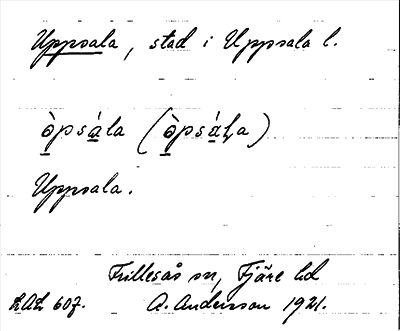 Uppsala, stad i Uppsala l.
òpsála (òpsáḷa)
Uppsala.
Frillesås sn, Fjäre hd
LAL 607. A. Anderson 1921.